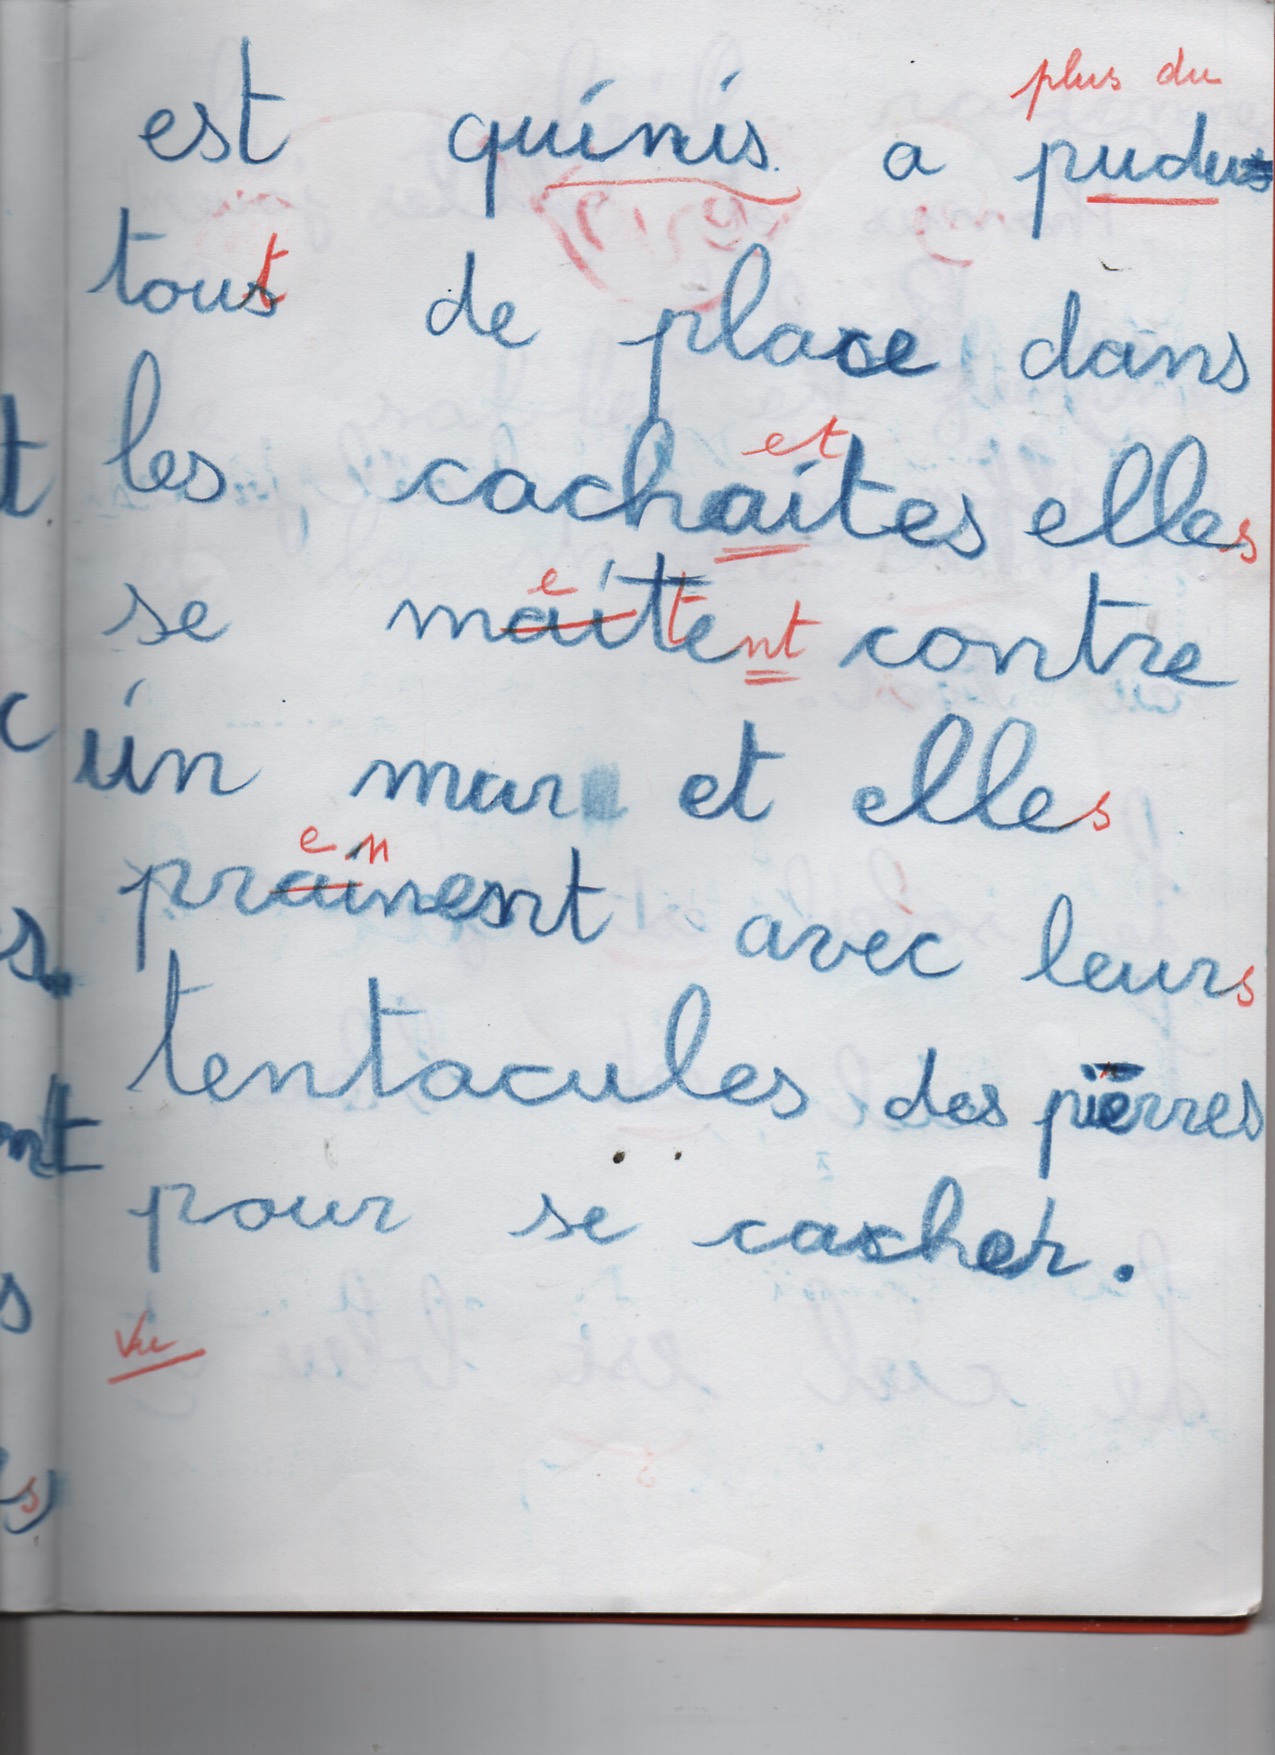 plus du
est quinis a pudus
tout de place dans
et
les cachaites elles
e
se maittent contre
un mur et elles
e n
prainent avec leurs
tentacules des pierres
pour se cacher.
Vu